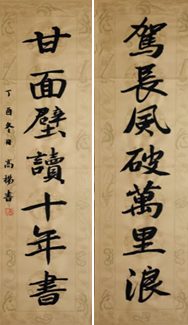 駕長風破萬里浪
甘面壁讀十年書
丁酉冬日 高揚書